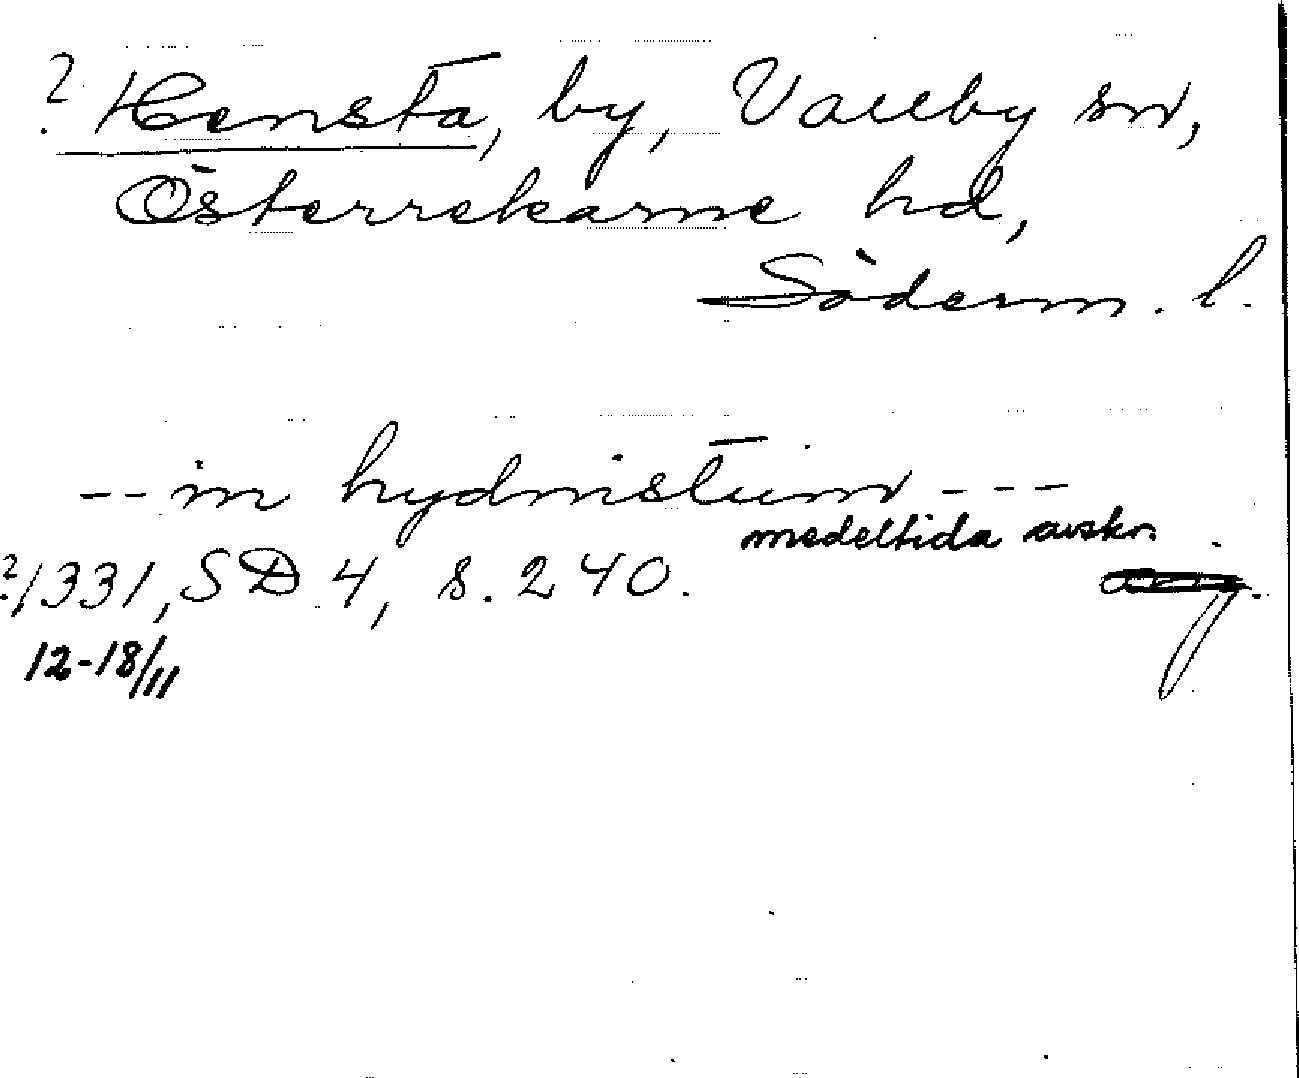 ? Hensta, by, Vallby sn,
Österrekarne hd,
Söderm. l.
-- in hydnistum ---
medeltida avskr.
? 1331, SD 4, s. 240.
12-18/11